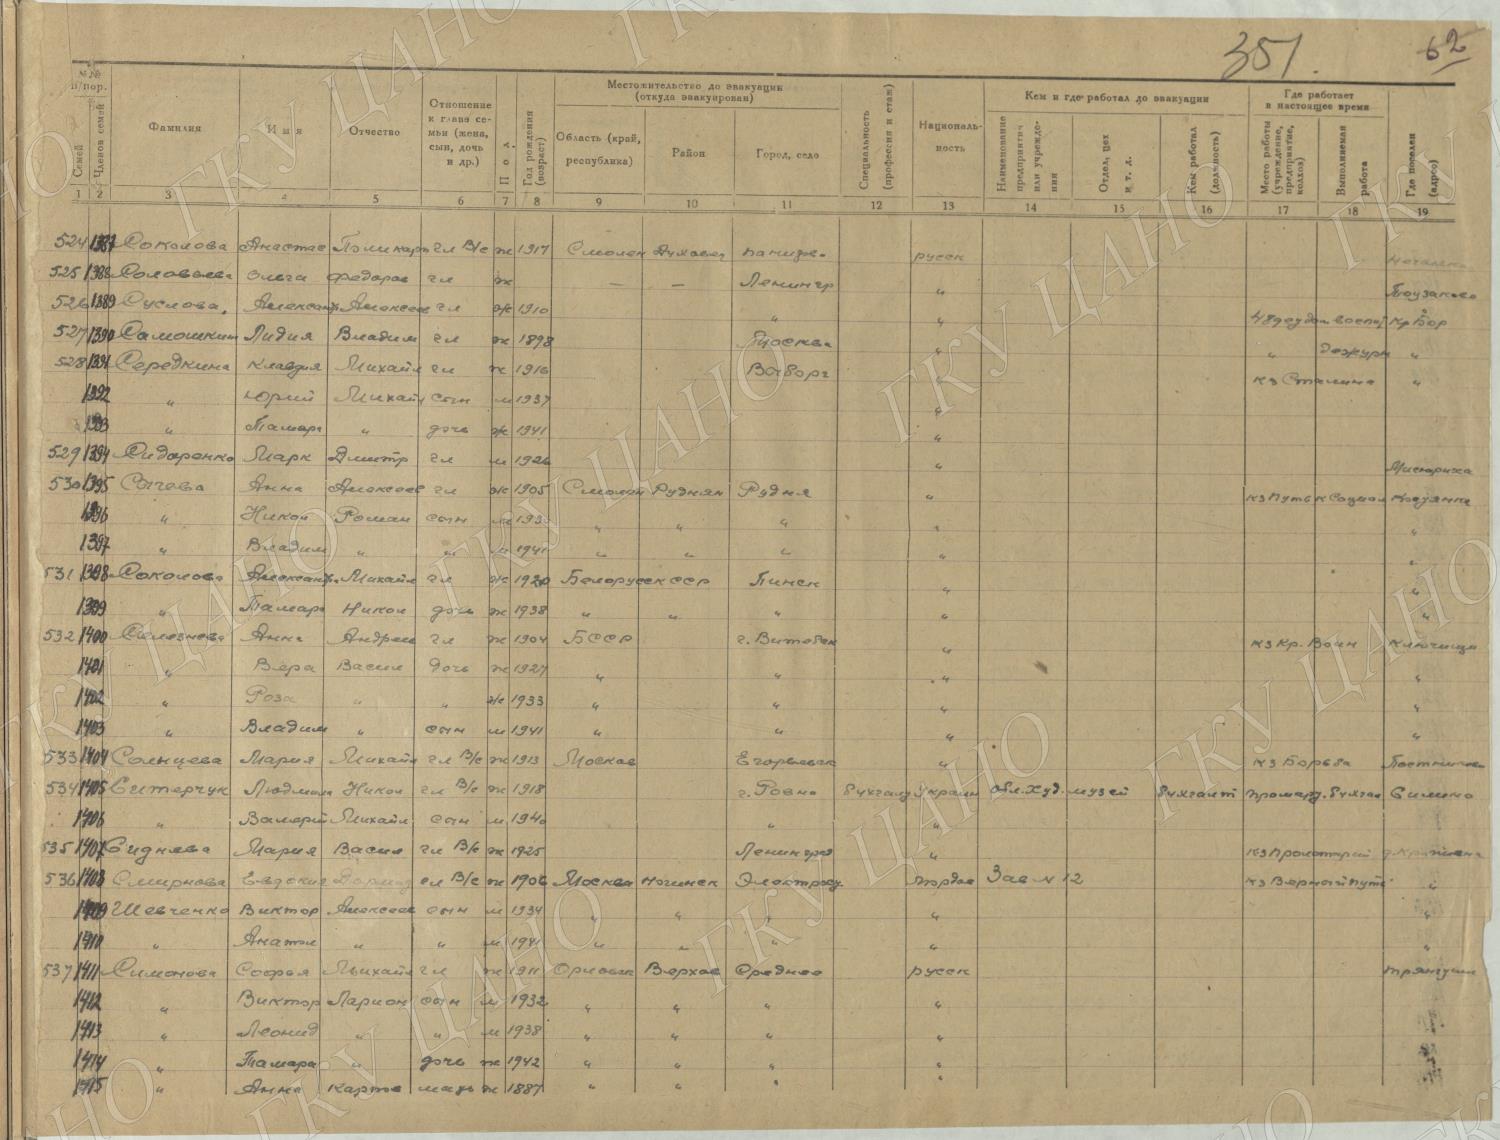 351. 62
№№ п/пор.
Семей
Членов семей
Фамилия
Имя
Отчество
Отношение к главе семьи (жена, сын, дочь и др.)
Пол.
Год рождения (возраст)
Местожительство до эвакуации (откуда эвакуирован)
Область (край, республика)
Район
Город, село
Специальность (профессия и стаж)
Националь-ность
Кем и где работал до эвакуации
Наименование предприятия или учреждения
Отдел, цех и т. д.
Кем работал (должность)
Где работает в настоящее время
Место работы (учреждение, предприятие, колхоз)
Выполняемая работа
Где поселен (адрес)
1 2 3 4 5 6 7 8 9 10 11 12 13 14 15 16 17 18 19
524 1387 Соколова Анастас Поликарп гл В/с ж 1917 Смолен Духовщ русск
525 1388 Соловьева Ольга Федоров гл ж — — Ленингр „
526 1389 Суслова. Александ Алексеев гл ж 1910 „ „ Кр Бор
527 1390 Самошкин Лидия Владим гл ж 1898 Москва „ „ Дежурн „
528 1391 Середкина Клавдия Михайл гл ж 1916 Выборг „ кз Сталина „
1392 „ Юрий Михайл сын м 1937 „
1393 „ Тамара „ дочь ж 1941 „
529 1394 Сидоренко Марк Дмитр гл м 1926 „
530 1395 Сычева Анна Алексеев гл ж 1905 Смолен Руднян Рудня „ кз Путь к Социал
1396 „ Никол Роман сын м 193 „ „ „ „ „
1397 „ Владим „ „ м 1941 „ „ „ „ „
531 1398 Соколова Александр. Михайл гл ж 1920 Белорусск ССР Пинск „ „
1399 „ Тамара Никол дочь ж 1938 „ „ „ „ „
532 1400 Селезнева Анна Андреев гл ж 1904 БССР г. Витебск „ кз Кр. Воин Ключищи
1401 „ Вера Васил дочь ж 1927 „ „ „ „
1402 „ Роза „ „ ж 1933 „ „ „ „
1403 „ Владим „ сын м 1941 „ „ „ „
533 1404 Солнцева Мария Михайл гл В/с ж 1913 Москов Егорьевск „ кз Борьба
534 1405 Ситерчук Людмила Никол гл В/с ж 1918 г. Ровно бухгалт Украин Обл. Худ. музей бухгалт бухгал Симино
1406 „ Валерий Михайл сын м 1940 „ „
535 1407 Сидняева Мария Васил гл В/с ж 1925 Ленинград „
536 1408 Смирнова Евдокия гл В/с ж 1906 Москва Ногинск Электрост. Мордов Зав № 12 кз Верный путь „
1409 Шевченко Виктор Алексеев сын м 1934 „ „ „ „ „
1410 „ Анатол „ „ м 1941 „ „ „ „ „
537 1411 Симонова Софья Михайл гл ж 1911 Орловск Верхов Среднее русск
1412 „ Виктор Ларион сын м 1932 „ „ „ „
1413 „ Леонид „ „ м 1938 „ „ „ „
1414 „ Тамара „ дочь ж 1942 „ „ „ „
1415 „ Анна Карпов мать ж 1887 „ „ „ „
ГКУ ЦАНО